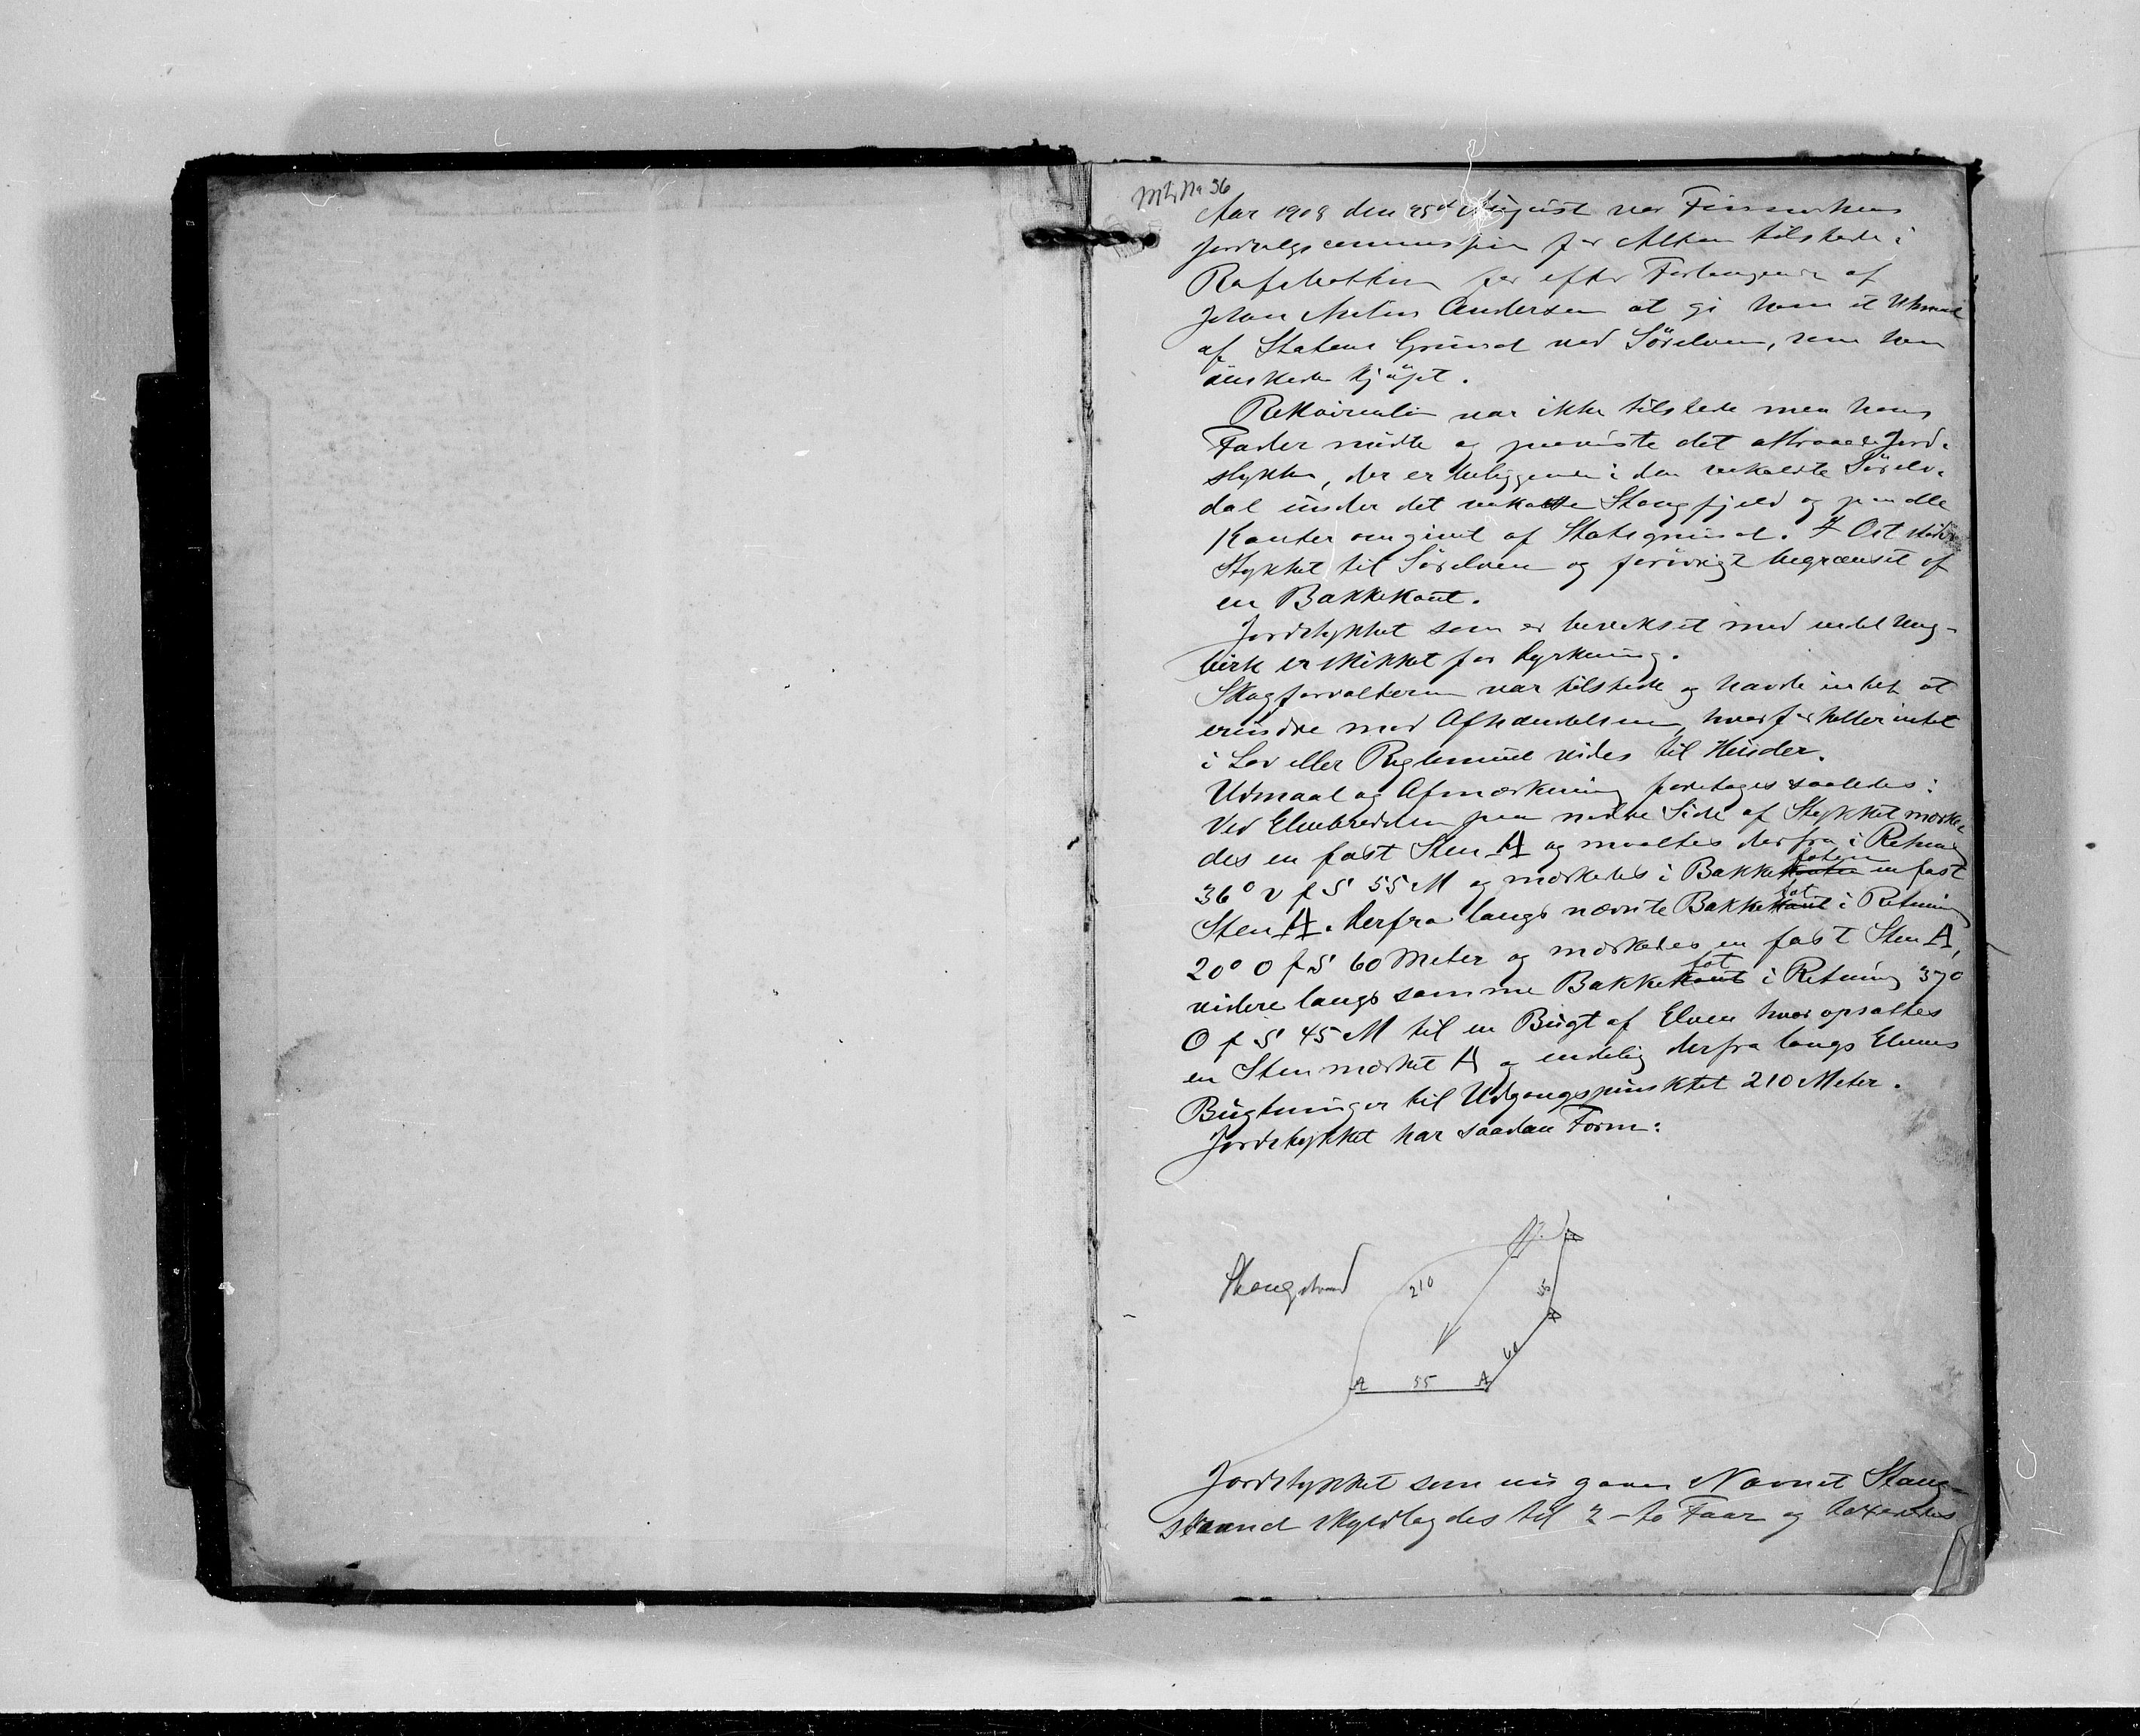 Mtr No 36
Aar 1908 den 25de August var Finmarkens
Jordsalgscommission for Alten tilstede i
Rafsbotten for efter Forlangende af
Johan Andersen at gi ham et Udmaal
af Statens Grund ved Sörelven, som han
önskede kjöpt.
Rekvirenten var ikke tilstede men hans
Fader mödte og paaviste det attraaede Jord-
stykke, der er beliggende i den saakaldte Sörelv-
dal under det saakaldte Stangfjeld og paa alle
Kanter omgivet af Statsgrund. I Öst stöder
Stykket til Sörelven og forövrigt begrænset af
en Bakkekant.
Jordstykket som er bevokset med endel Ung-
birk er skikket for Dyrkning.
Skogforvalteren var tilstede og havde intet at
erindre mod Afhændelsen, hvorfor heller intet
i Lov eller Reglement vides til Hinder.
Udmaal og Afmærkning foretoges saaledes:
Ved Elvebredden paa nedre Side af Stykket mærke-
des en fast Sten A og maaltes derfra i Retning
36° v f S 55 M og mærkedes i Bakkefoten en fast
Sten A. Derfra langs nævnte Bakkefot i Retning
20° O f S 60 Meter og mærkedes en fast Sten A,
videre langs samme Bakkefot i Retning 37°
O f S 45 M til en Bugt af Elven hvor opsattes
en Sten mærket A og endelig derfra langs Elvens
Bugtninger til Udgangspunktet 210 Meter.
Jordstykket har saadan Form:
N.
A
Stangstrand
210
45
A
60
A 55 A
Jordstykket som nu gaves Navnet Stang-
strand skyldlagdes til 2 - to Faar og taxeredes